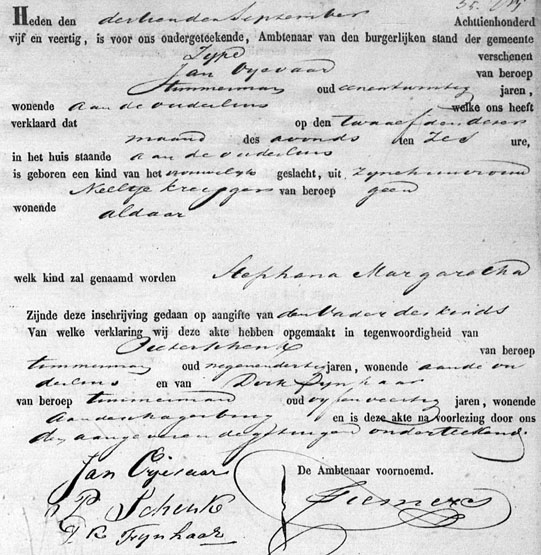 Heden den dertienden September Achttienhonderd
vijf en veertig, is voor ons ondergeteekende, Ambtenaar van den burgerlijken stand der gemeente
Zijpe verschenen
Jan van beroep
timmerman oud eenentwintig jaren,
wonende aan de welke ons heeft
verklaard dat op den twaalfden dezer
maand des avonds ten zes ure,
in het huis staande aan de
is geboren een kind van het vrouwelijk geslacht, uit zijne huisvrouw
Neeltje van beroep geen
wonende aldaar
welk kind zal genaamd worden Stephana Margaretha
Zijnde deze inschrijving gedaan op aangifte van den Vader des kinds
Van welke verklaring wij deze akte hebben opgemaakt in tegenwoordigheid van
Pieter Schenk van beroep
timmerman oud negenendertig jaren, wonende aan de
en van Dirk
van beroep timmerman oud vijfenveertig jaren, wonende
aan de en is deze akte na voorlezing door ons
den aangever en de getuigen onderteekend.
Jan De Ambtenaar voornoemd.
P. Schenk